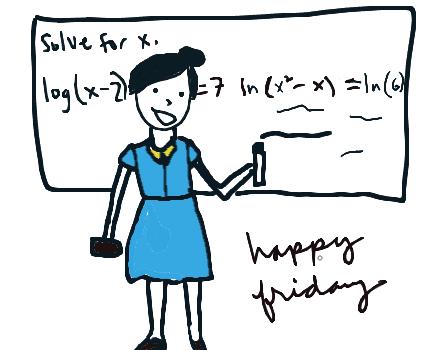 Solve for x.
log(x-2) =7 ln(x²-x) =ln(6)
happy
friday